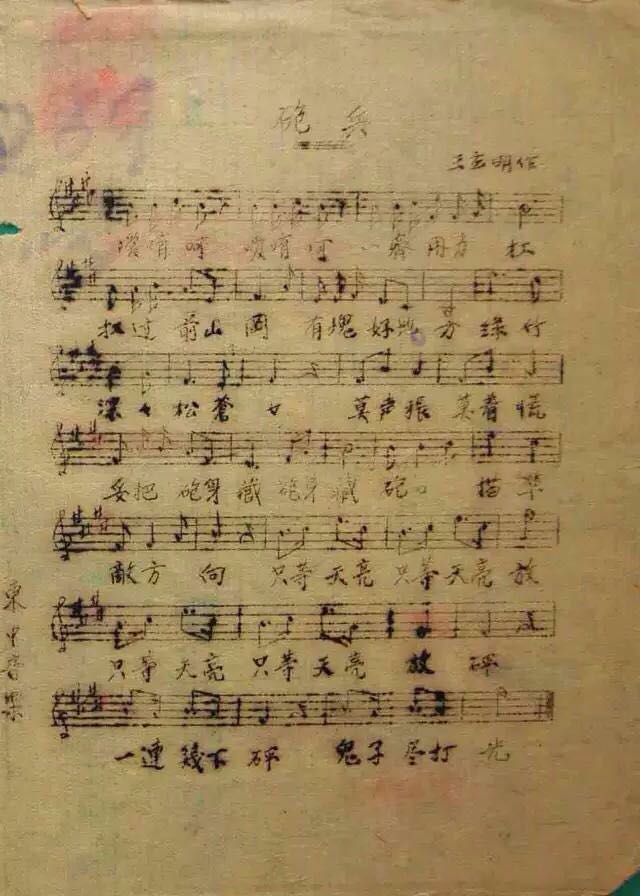 砲兵
王立明作
嗳唷呵 嗳唷呵 一齊用力 杠
扛过前山岡 有塊好地方 绿竹
深々松蒼々 莫声張 莫着慌
妥把砲身藏砲身藏 砲口描準
敵方向 只等天亮只等天亮放
只等天亮只等天亮放砰
一連幾下砰 鬼子尽打光
東中音樂